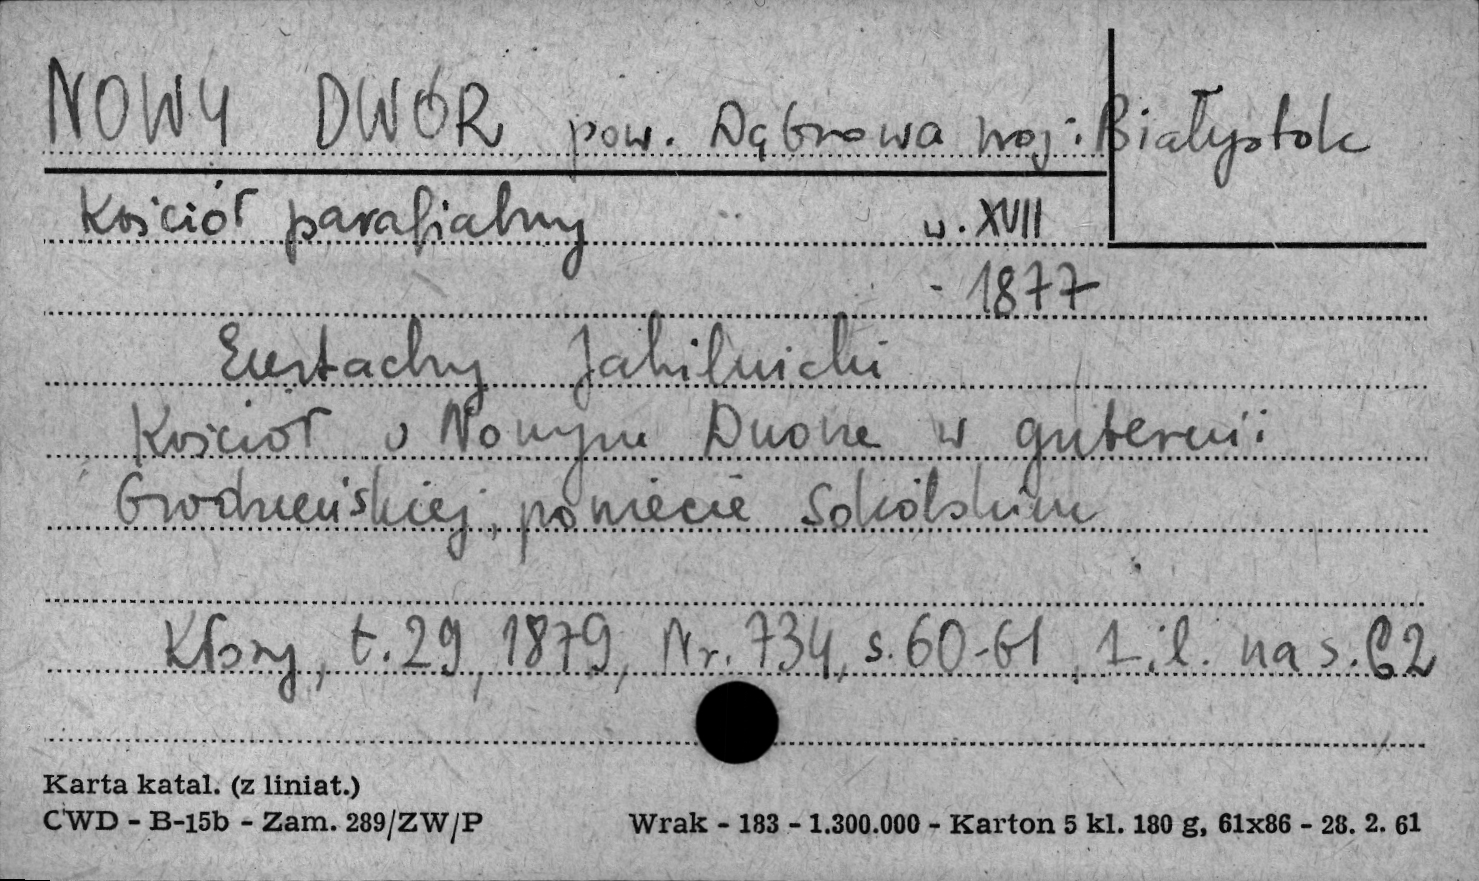 NOWY DWÓR pow. Dąbrowa woj. Białystok
Kościół parafialny w. XVII
- 1877
Eustachy Jakilnicki
Kościół w Nowym Dworze w gubernii
Grodzieńskiej, powiecie Sokólskim
Kłosy, t. 29, 1879, Nr. 734, s. 60-61, 1 il. na s. 62
Karta katal. (z liniat.)
CWD - B-15b - Zam. 289/ZW/P Wrak - 183 - 1.300.000 - Karton 5 kl. 180 g, 61x86 - 28. 2. 61